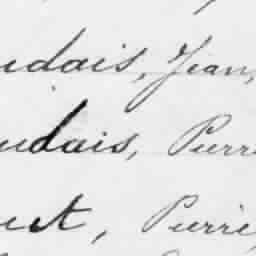 udais, Jean,
udais, Pierre
uet, Pierre,